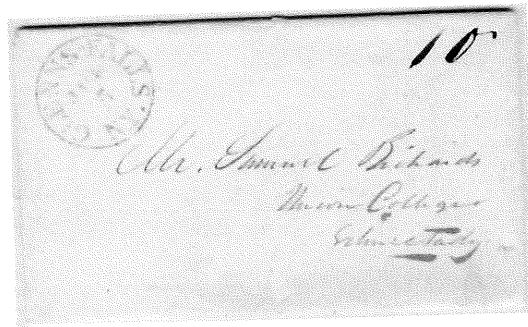 10
GLENS-FALLS N.Y.
Mr. Samuel Richards
Union College
Schenectady